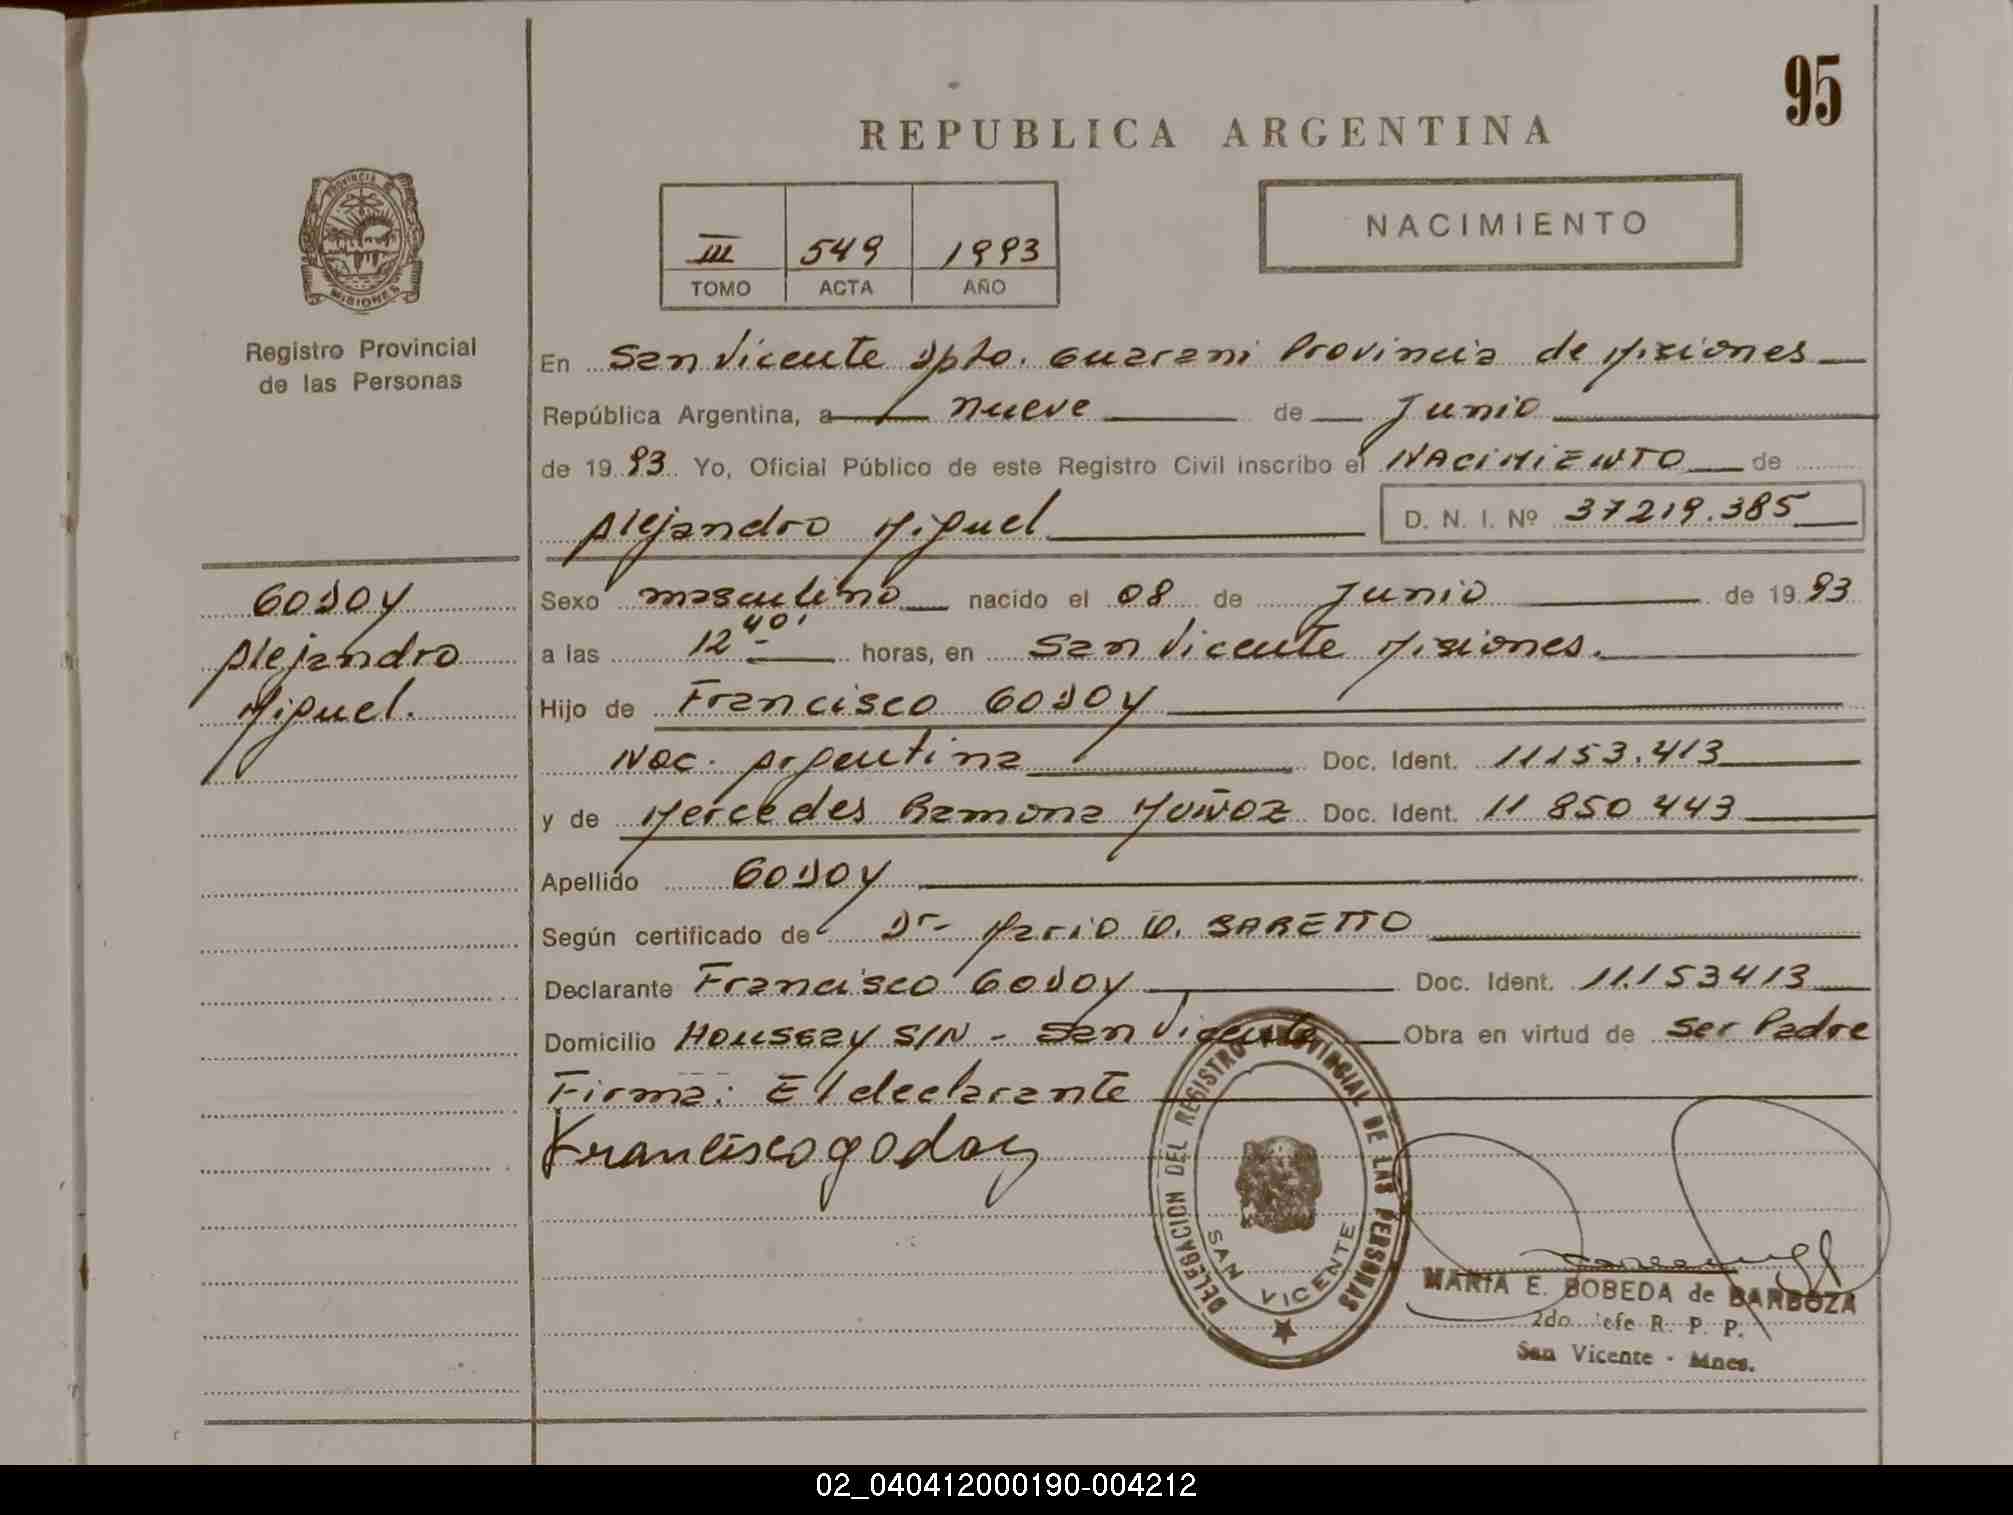 95
REPUBLICA ARGENTINA
NACIMIENTO
III 549 1993
TOMO ACTA AÑO
PROVINCIA DE MISIONES
Registro Provincial
de las Personas
En San Vicente Dpto. Guarani Provincia de Misiones
República Argentina, a nueve de Junio
de 1993 Yo, Oficial Público de este Registro Civil inscribo el NACIMIENTO de
Alejandro Miguel D. N. I. Nº 37219.385
GODOY
Alejandro
Miguel.
Sexo masculino nacido el 08 de Junio de 1993
a las 12 40' horas, en San Vicente Misiones.
Hijo de Francisco GODOY
Nac. Argentina Doc. Ident. 11153.413
y de Mercedes Ramona MUÑOZ Doc. Ident. 11 850 443
Apellido GODOY
Según certificado de Dr- Mario O. SARETTO
Declarante Francisco GODOY Doc. Ident. 11.153413
Domicilio Houssay S/N - San Vicente Obra en virtud de Ser Padre
Firma: El declarante
Francisco godoy
DELEGACION DEL REGISTRO PROVINCIAL DE LAS PERSONAS
SAN VICENTE
MARIA E. BOBEDA de BARBOZA
2do. Jefe R. P. P.
San Vicente - Mnes.
02_040412000190-004212